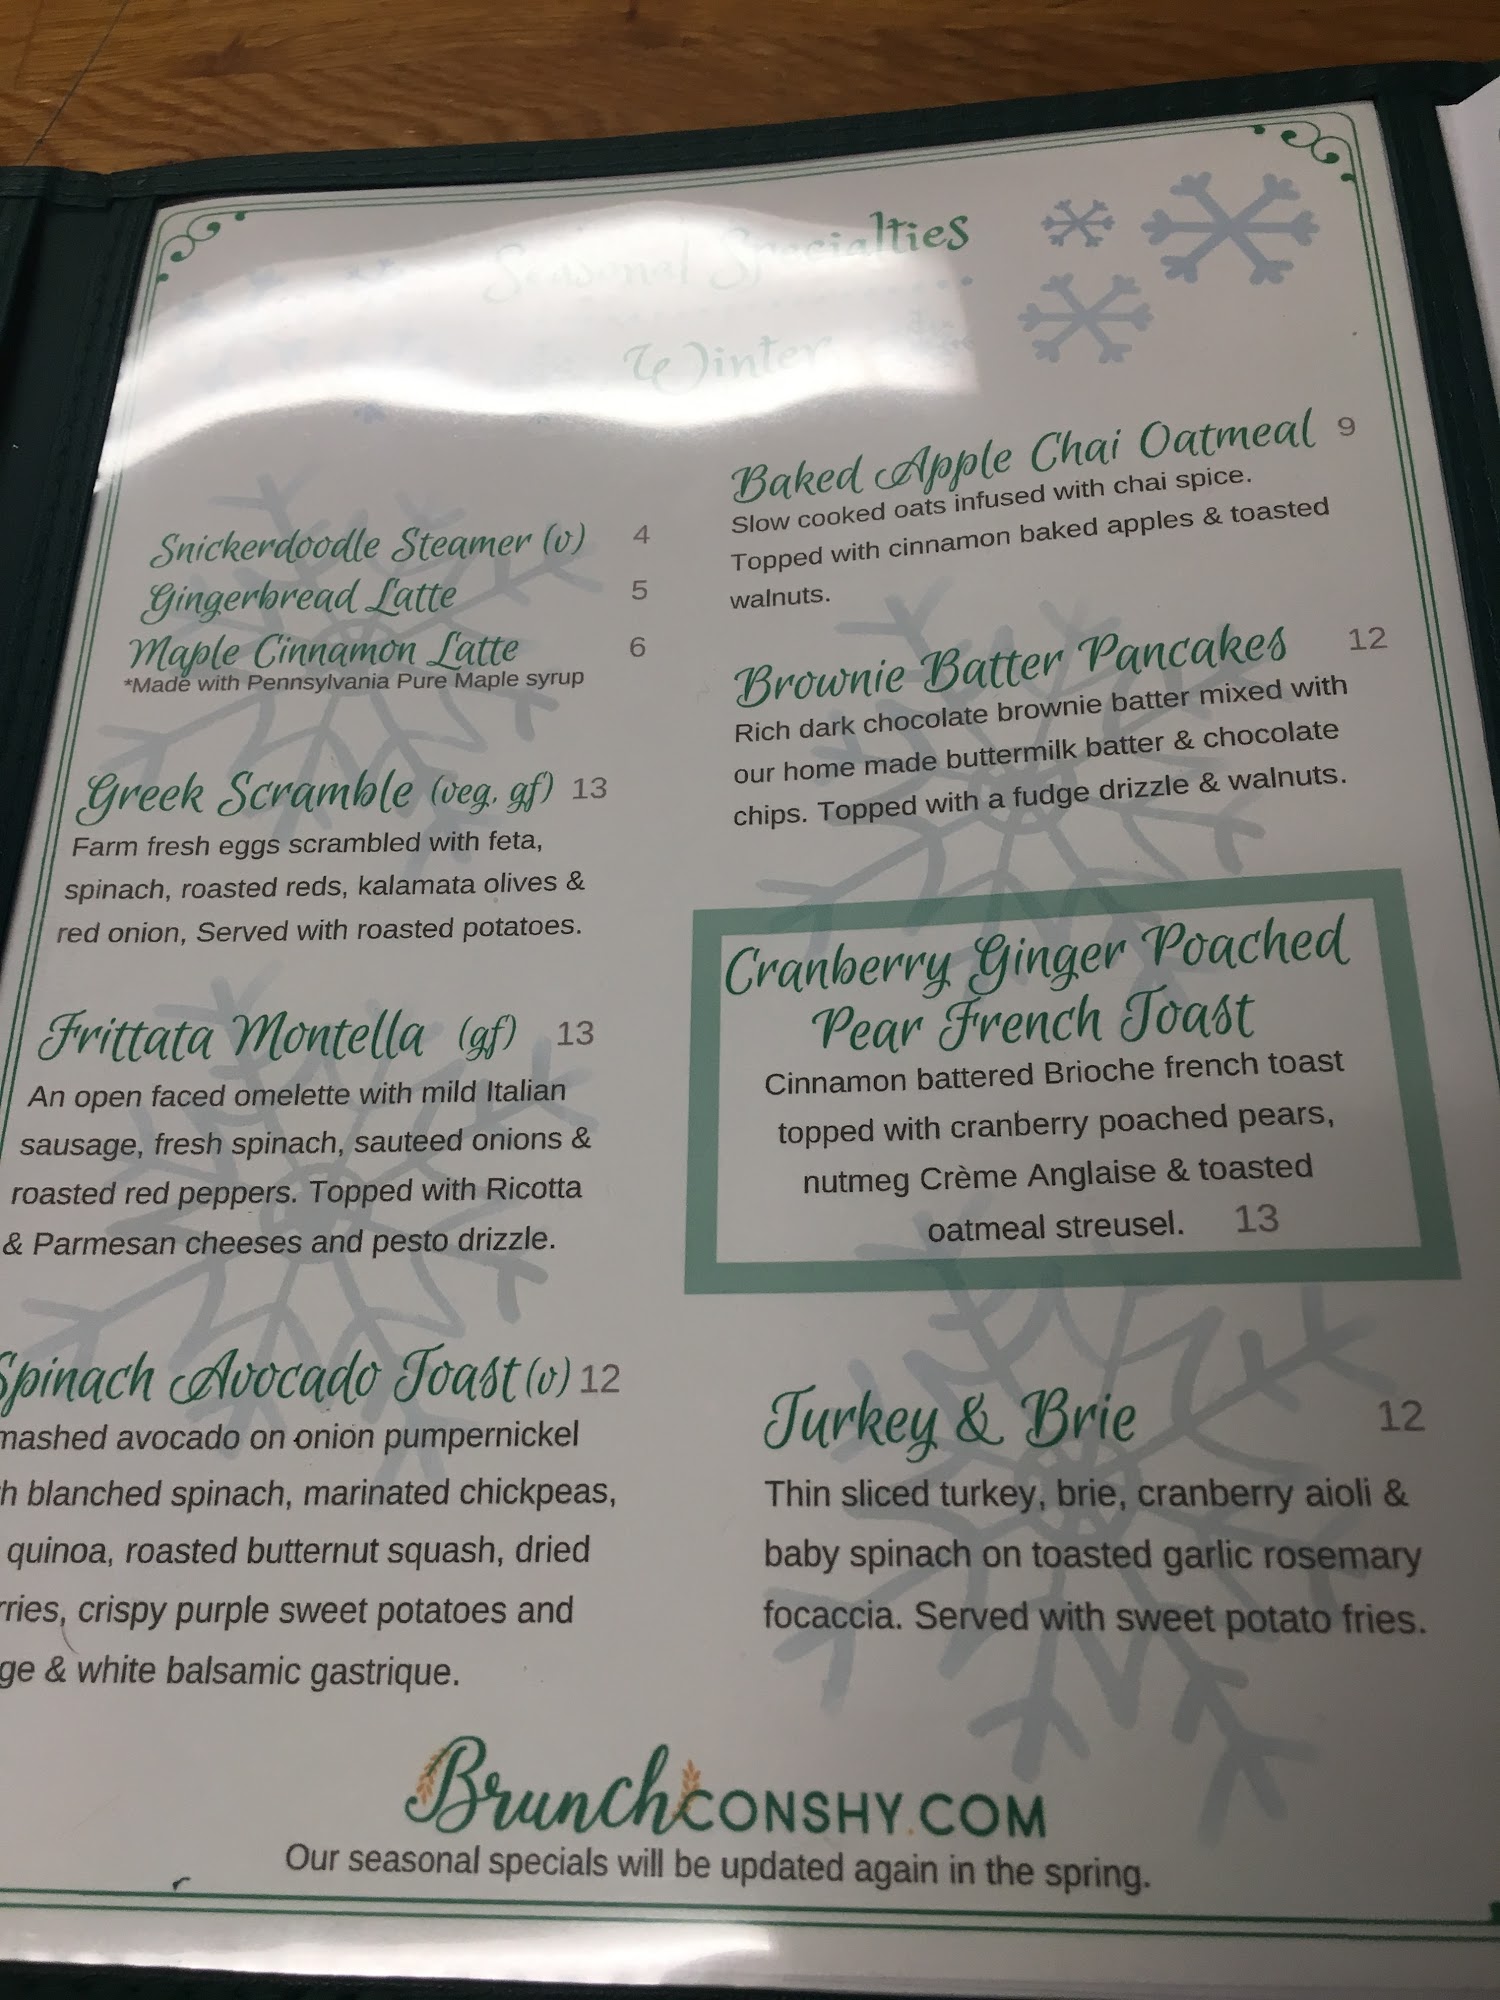 Seasonal Specialties
Winter
Snickerdoodle Steamer (v) 4
Gingerbread Latte 5
Maple Cinnamon Latte 6
*Made with Pennsylvania Pure Maple syrup
Greek Scramble (veg, gf) 13
Farm fresh eggs scrambled with feta,
spinach, roasted reds, kalamata olives &
red onion, Served with roasted potatoes.
Frittata Montella (gf) 13
An open faced omelette with mild Italian
sausage, fresh spinach, sauteed onions &
roasted red peppers. Topped with Ricotta
& Parmesan cheeses and pesto drizzle.
Spinach Avocado Toast (v) 12
mashed avocado on onion pumpernickel
blanched spinach, marinated chickpeas,
quinoa, roasted butternut squash, dried
crispy purple sweet potatoes and
& white balsamic gastrique.
Baked Apple Chai Oatmeal 9
Slow cooked oats infused with chai spice.
Topped with cinnamon baked apples & toasted
walnuts.
Brownie Batter Pancakes 12
Rich dark chocolate brownie batter mixed with
our home made buttermilk batter & chocolate
chips. Topped with a fudge drizzle & walnuts.
Cranberry Ginger Poached
Pear French Toast
Cinnamon battered Brioche french toast
topped with cranberry poached pears,
nutmeg Crème Anglaise & toasted
oatmeal streusel. 13
Turkey & Brie 12
Thin sliced turkey, brie, cranberry aioli &
baby spinach on toasted garlic rosemary
focaccia. Served with sweet potato fries.
BrunchCONSHY.COM
Our seasonal specials will be updated again in the spring.